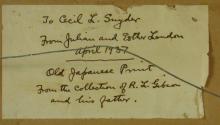 To Cecil L. Snyder
From Julian and Esther London
April 1937
Old Japanese Print
From the collection of R. L. Gibson
and his father.